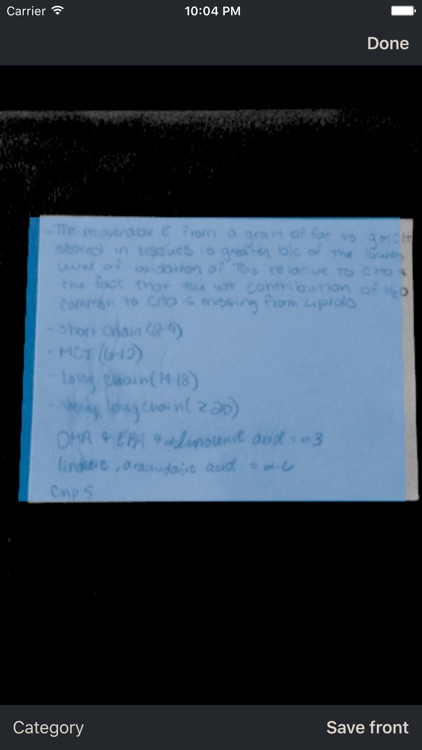 Carrier 10:04 PM
Done
- The recoverable E from a gram of fat vs gm CHO
stored in tissues is greater b/c of the lower
level of oxidation of relative to CHO &
the fact that the wt contribution of H2O
common to CHO is missing from lipids.
- Short chain (2-4)
- MCT (6-12)
- Long chain (14-18)
- very long chain (≥20)
DHA & EPA & linolenic acid = 3
linoleic, arachidonic acid = 6
Chp 5
Category
Save front